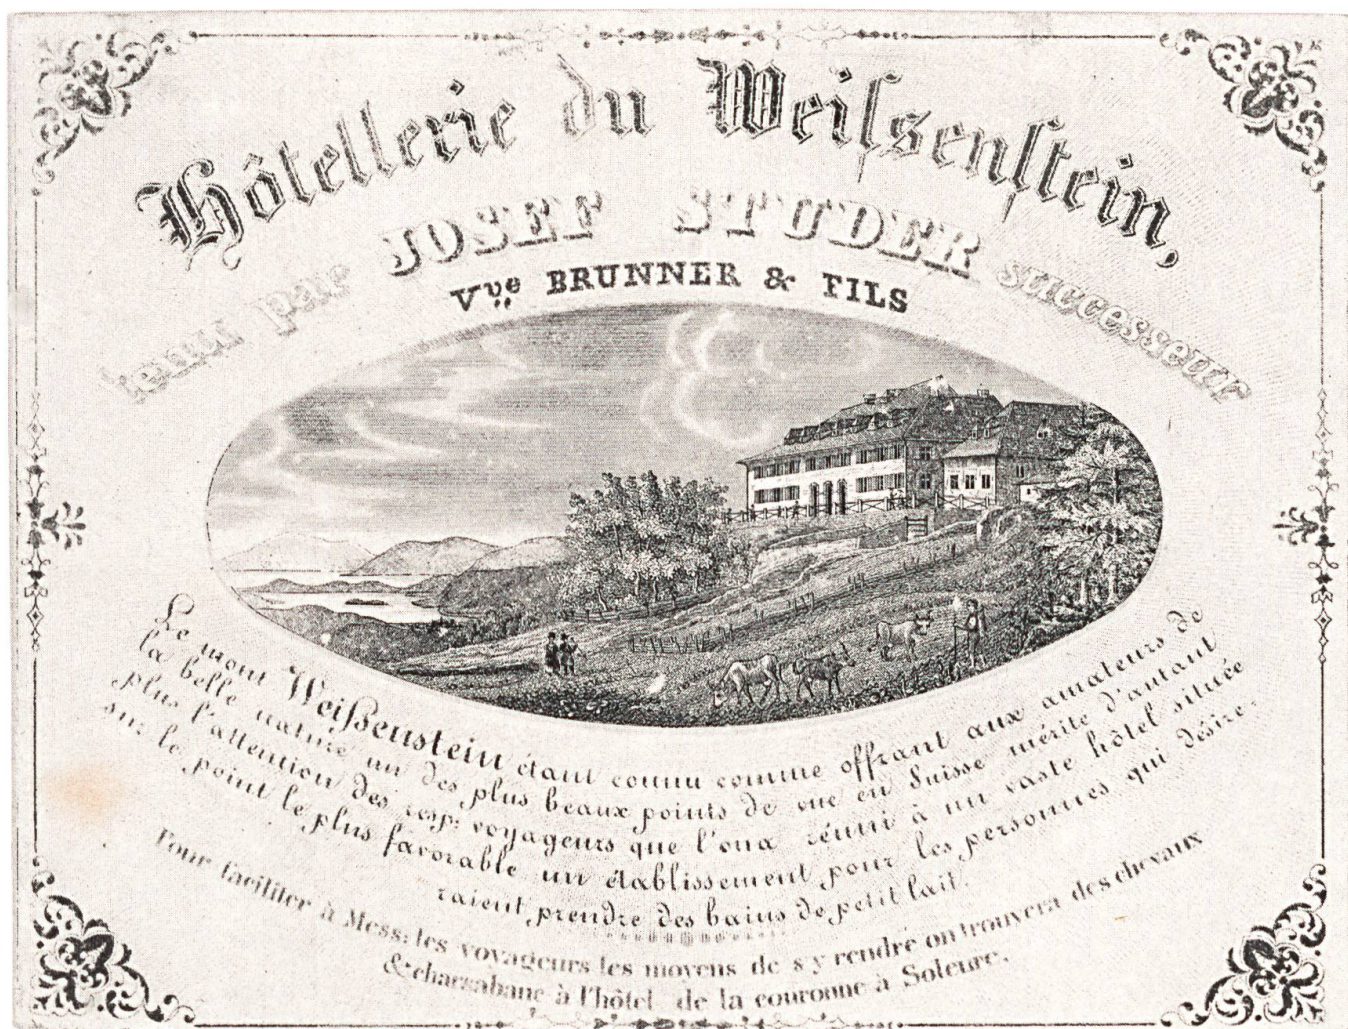 Hôtellerie du Weiſsenſtein,
tenu par JOSEF STUDER successeur
Vve BRUNNER & FILS
Le mont Weiſsenstein étant connu comme offrant aux amateurs de
la belle nature un des plus beaux points de vue en Suisse mérite d'autant
plus l'attention des resp: voyageurs que l'ona réuni à un vaste hôtel située
sur le point le plus favorable un établissement pour les personnes qui désire-
raient prendre des bains de petit lait.
Pour faciliter à Mess: les voyageurs les moyens de s'y rendre on trouvera des chevaux
& charsabanc à l'hôtel de la couronne à Soleure.